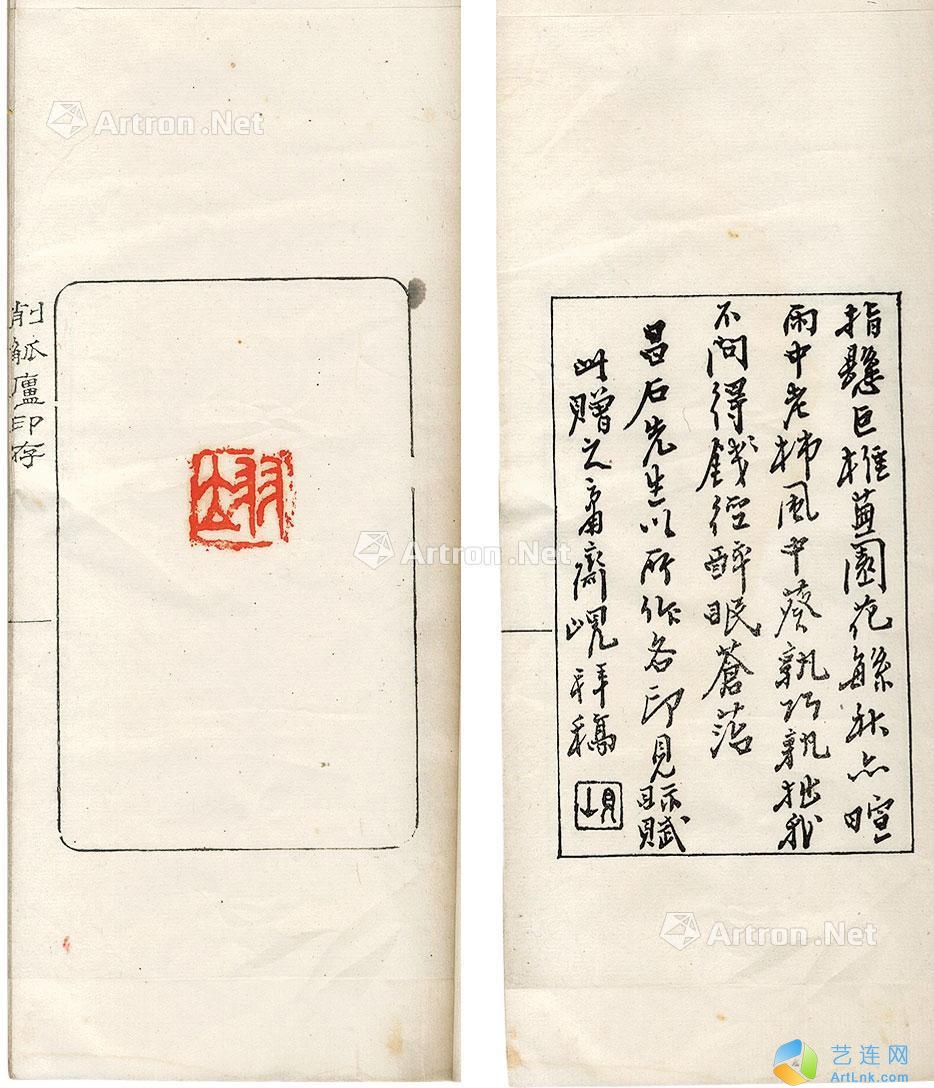 指懸巨椎園花秋暄
雨中老柿風中葵孰巧孰拙我
不問得錢徑醉眠蒼苔
昌石先生以所作各印見眎賦
此贈之庸齋峴拜稿
峴
削觚廬印存
Artron.Net
Artron.Net
Artron.Net
艺连网
ArtLnk.com